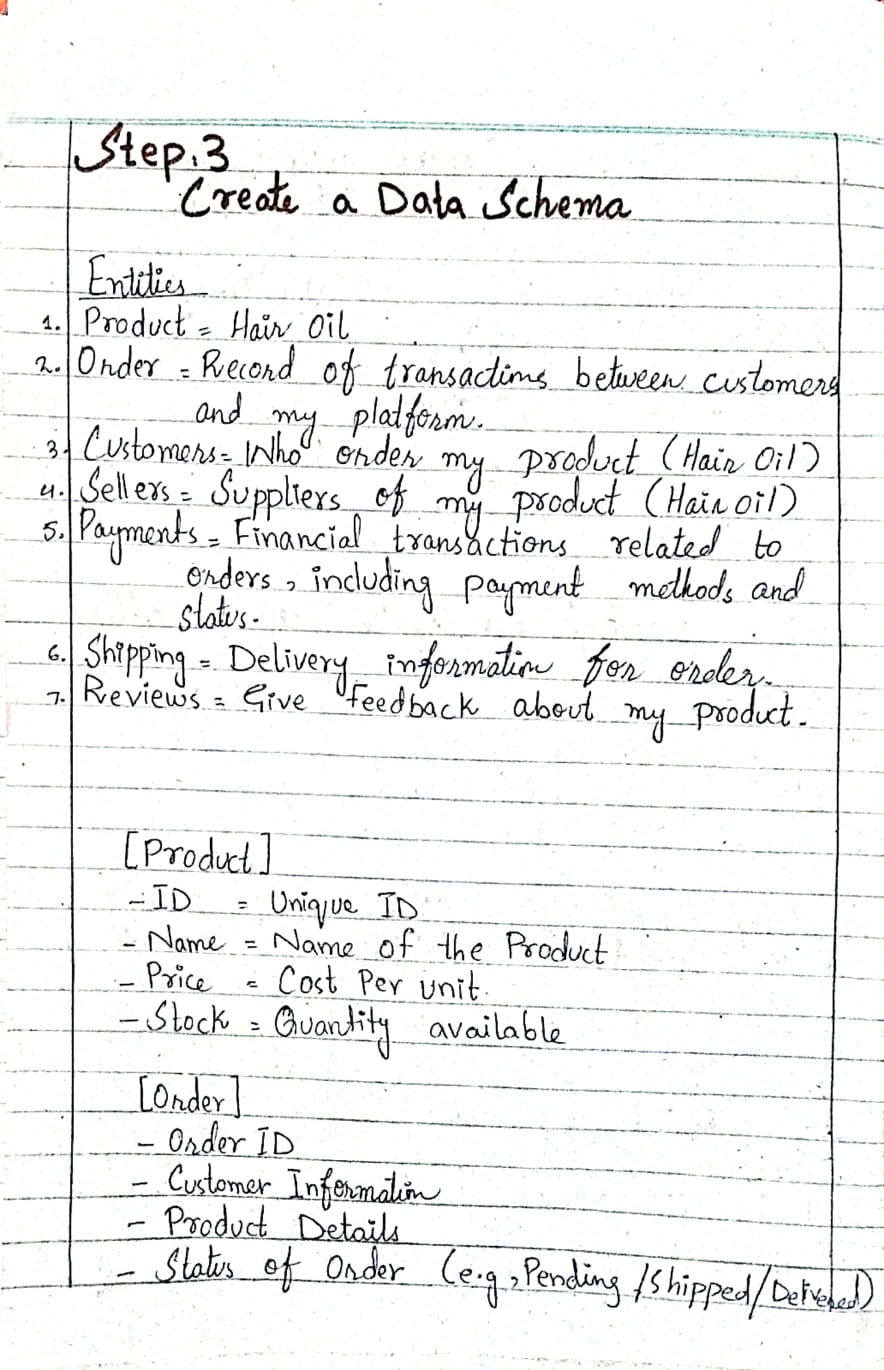 Step.3
Create a Data Schema
Entities
1. Product = Hair Oil
2. Order = Record of transactions between customers
and my platform.
3. Customers = Who order my product (Hair Oil)
4. Sellers = Suppliers of my product (Hair oil)
5. Payments = Financial transactions related to
orders, including payment methods and
status.
6. Shipping = Delivery information for order.
7. Reviews = Give Feedback about my product.
[Product]
- ID = Unique ID
- Name = Name of the Product
- Price = Cost Per unit.
- Stock = Quantity available
[Order]
- Order ID
- Customer Information
- Product Details
- Status of Order (e.g, Pending /Shipped/Delivered)